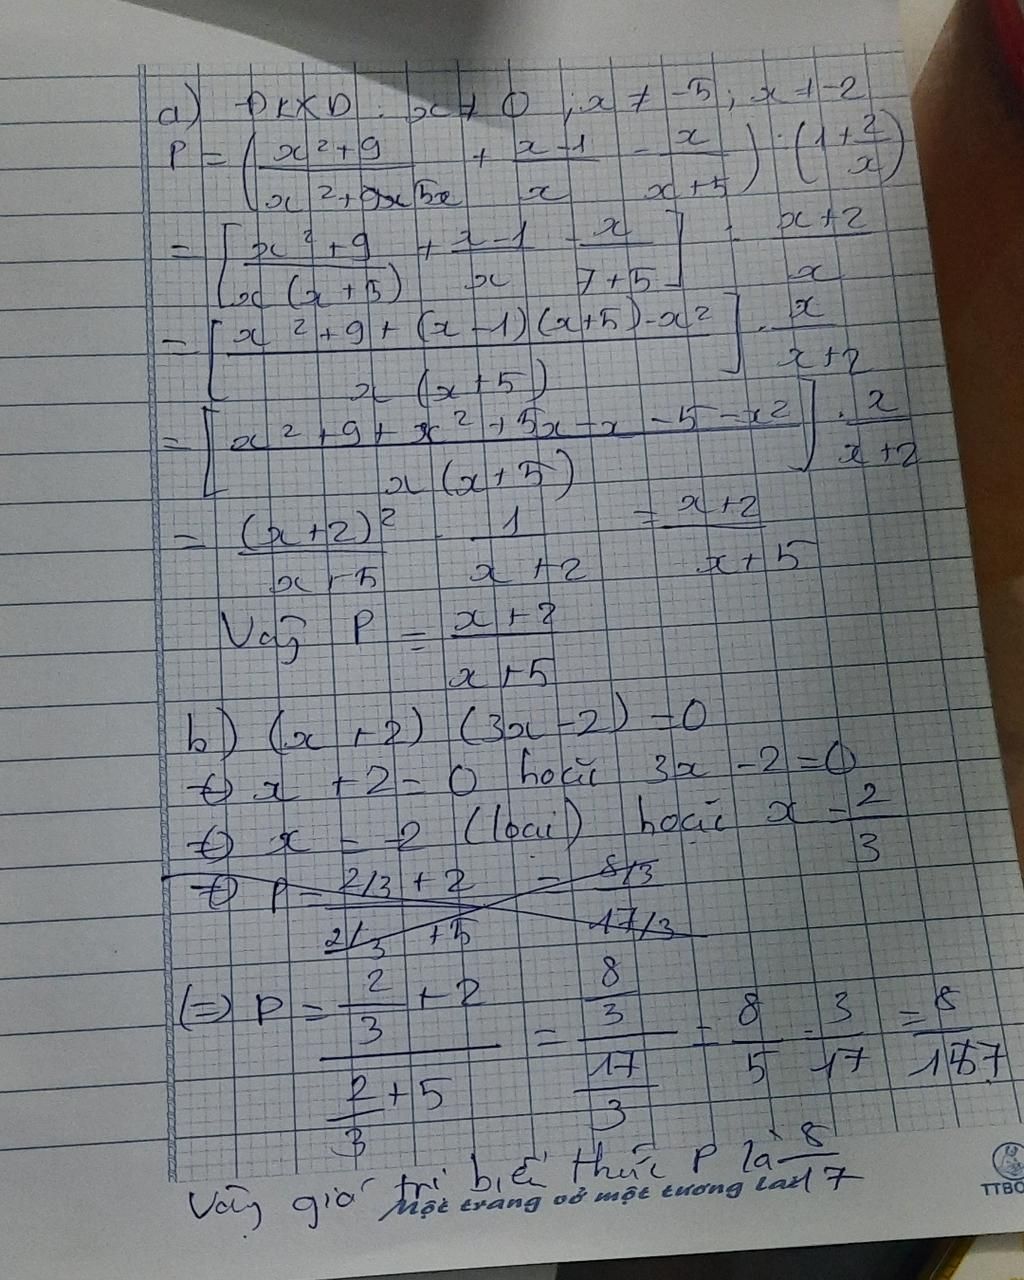 a) ĐKXĐ: x ≠ 0 ; x ≠ -5 ; x ≠ -2
P = ( (x² + 9)/(x² + 5x) + (x - 1)/x - x/(x + 5) ) : (1 + 2/x)
= [ (x² + 9)/(x (x + 5)) + (x - 1)/x - x/(7 + 5) ] : (x + 2)/x
= [ (x² + 9 + (x - 1)(x + 5) - x²)/(x (x + 5)) ] . x/(x + 2)
= [ (x² + 9 + x² + 5x - x - 5 - x²)/(x (x + 5)) ] . x/(x + 2)
= (x + 2)²/(x + 5) . 1/(x + 2) = (x + 2)/(x + 5)
Vậy P = (x + 2)/(x + 5)
b) (x + 2) (3x - 2) = 0
⇔ x + 2 = 0 hoặc 3x - 2 = 0
⇔ x = -2 (loại) hoặc x = 2/3
⇔ P = (2/3 + 2)/(2/3 + 5) = (8/3)/(17/3)
(=) P = (2/3 + 2)/(2/3 + 5) = (8/3)/(17/3) = 8/5 . 3/17 = 8/17
Vậy giá trị biểu thức P là 8/17
Một trang vở một tương lai
TTBO